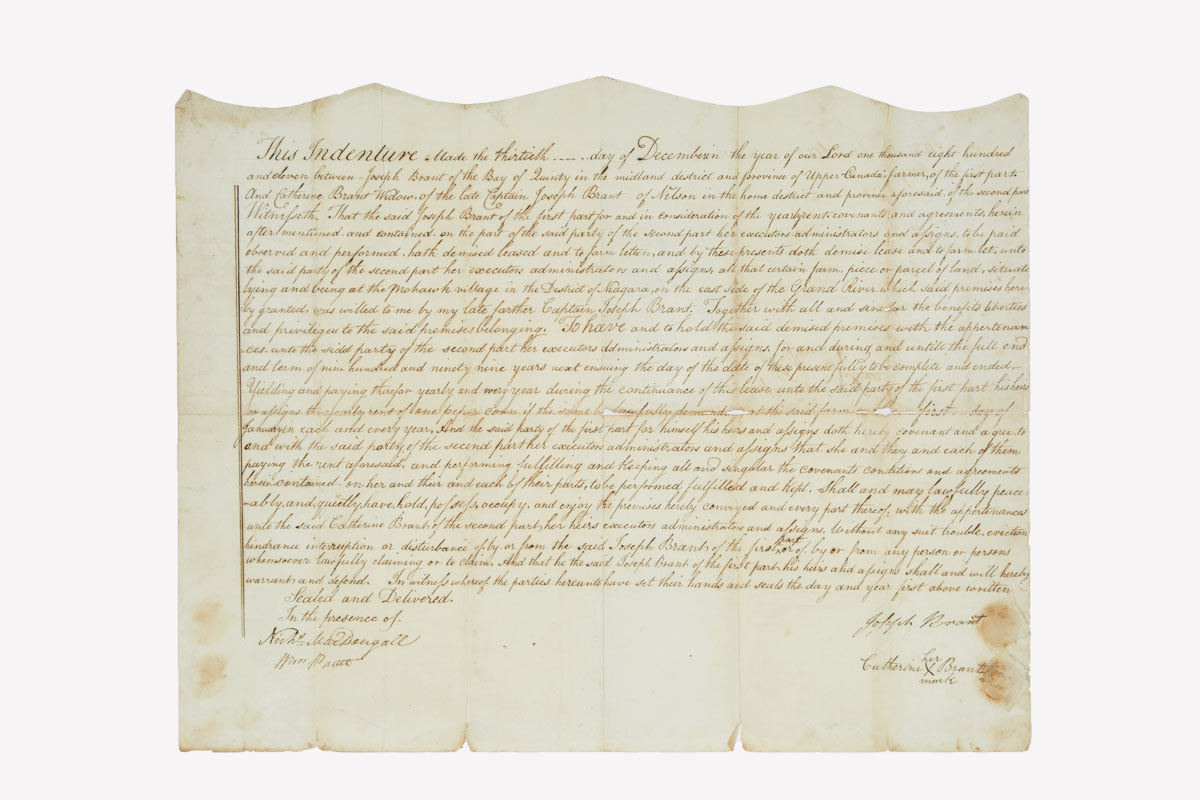 This Indenture Made the thirtieth ---- day of December in the year of our Lord one thousand eight hundred
and eleven between Joseph Brant of the Bay of Quinty in the midland district and province of Upper Canada farmer, of the first part
And Catherine Brant Widow, of the late Captain Joseph Brant of Nelson in the home district and province aforesaid of the second part
Witnesseth, That the said Joseph Brant of the first part for and in consideration of the yearly rent, covenants and agreements, herein
after mentioned, and contained on the part of the said party of the second part her executors administrators and assigns, to be paid
observed and performed, hath demised leased and to farm letten, and by these presents doth demise lease and to farm let, unto
the said party of the second part her executors administrators and assigns, all that certain farm, piece or parcel of land, situate
lying and being at the Mohawk village in the District of Niagara, on the east side of the Grand River, which said premises here-
by granted, was willed to me by my late farther Captain Joseph Brant. Together with all and singular the benefits liberties
and privileges to the said premises belonging. To have and to hold the said demised premises with the appertenan
ces, unto the said party of the second part her executors administrators and assigns, for and during and untill the full end
and term of nine hundred and ninety nine years next ensuing the day of the date of these present fully to be complete and ended,
Yielding and paying therfor yearly and every year during the continuance of this lease unto the said party of the first part his heirs
or assigns the yearly rent of one pepper corn if the same be lawfully demanded at the said farm first day of
January in each and every year, And the said party of the first part for himself his heirs and assigns doth hereby covenant and agree to
and with the said party of the second part her executors administrators and assigns that she and they and each of them
paying the rent aforesaid, and performing fulfilling and keeping all and singular the covenants conditions and agreements
herein contained on her and their and each of their parts, to be performed fulfilled and kept. Shall and may lawfully peace-
-ably, and quietly, have, hold, possess, occupy, and enjoy the premises hereby conveyed and every part thereof, with the appertenances
unto the said Catherine Brant, of the second part, her heirs executors administrators and assigns, Without any suit trouble, eviction
hindrance interruption or disturbance of by or from the said Joseph Brant of the first part or of by or from any person or persons
whomsoever lawfully claiming or to claim. And that he the said Joseph Brant of the first part, his heirs and assigns shall and will hereby
warrant and defend. In witness whereof the parties hereunto have set their hands and seals the day and year first above written
Sealed and Delivered.
In the presence of.
MacDougall
Wm
Joseph Brant
Catherine her X mark Brant